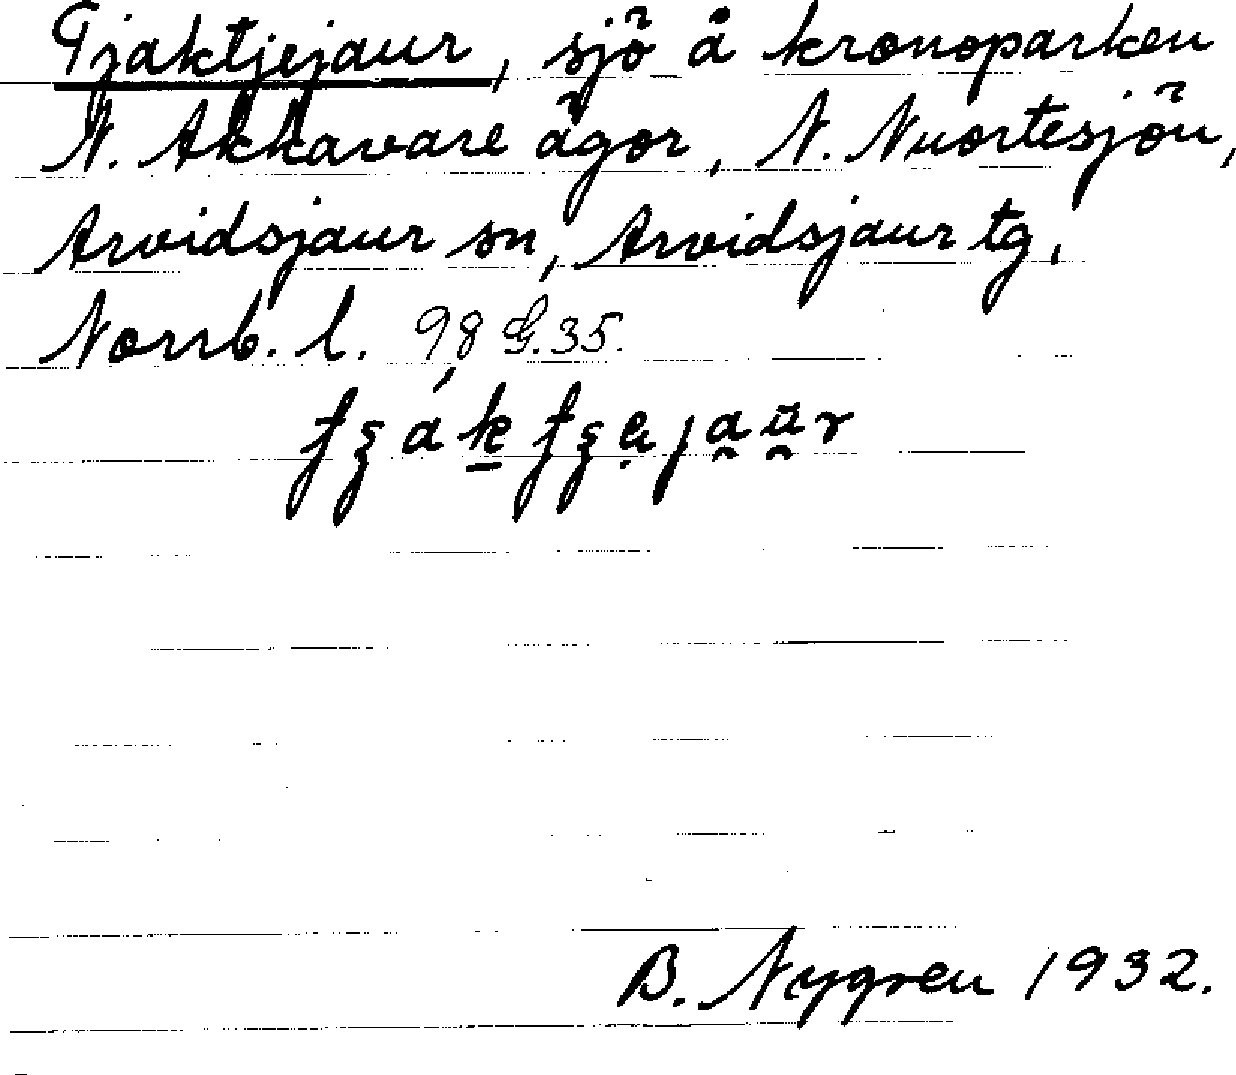 Tjaktjejaur, sjö å kronoparken
N. Akkavare ägor, N. Nuortesjön,
Arvidsjaur sn, Arvidsjaur tg,
Norrb. l. 98 G. 35.
B. Nygren 1932.